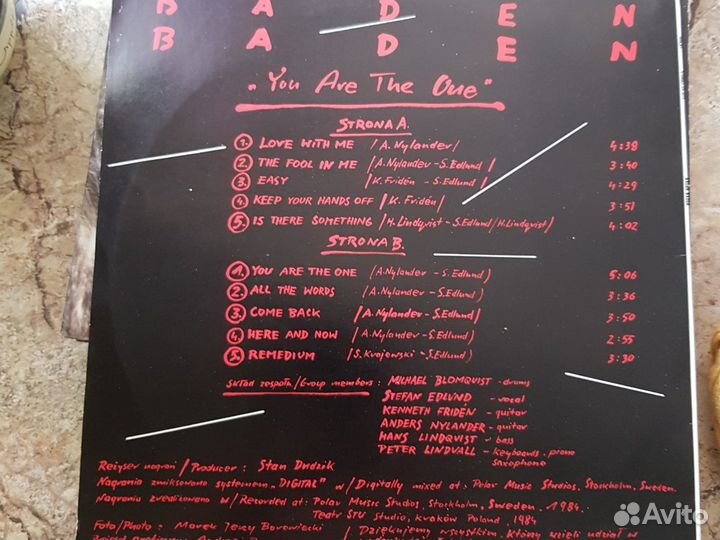 B A D E N
B A D E N
„You Are The One"
STRONA A.
1. LOVE WITH ME /A.Nylander/ 4:38
2. THE FOOL IN ME /A.Nylander-S.Edlund/ 3:40
3. EASY /K.Fridén-S.Edlund/ 4:29
4. KEEP YOUR HANDS OFF /K.Fridén/ 3:51
5. IS THERE SOMETHING /H.Lindqvist-S.Edlund/H.Lindqvist/ 4:02
STRONA B.
1. YOU ARE THE ONE /A.Nylander-S.Edlund) 5:06
2. ALL THE WORDS /A.Nylander-S.Edlund) 3:36
3. COME BACK /A.Nylander-S.Edlund/ 3:50
4. HERE AND NOW /A.Nylander-S.Edlund) 2:55
5. REMEDIUM /S.Krajewski-S.Edlund) 3:30
Skład zespołu/Group members: MICHAEL BLOMQUIST - drums
STEFAN EDLUND - vocal
KENNETH FRIDÉN - guitar
ANDERS NYLANDER - guitar
HANS LINDQVIST - bass
PETER LINDVALL - keyboards, piano
saxophone
Reżyser nagrań/Producer: Stan Dudzik
Nagrania zmiksowano systemem „DIGITAL" w/Digitally mixed at: Polar Music Studios, Stockholm, Sweden.
Nagrania zrealizowano w/Recorded at: Polar Music Studios, Stockholm, Sweden, 1984.
Teatr STU Studio, Kraków Poland, 1984
Foto/Photo: Marek Jerzy Borowiecki / Dziękujemy wszystkim, którzy wzięli udział w
Avito